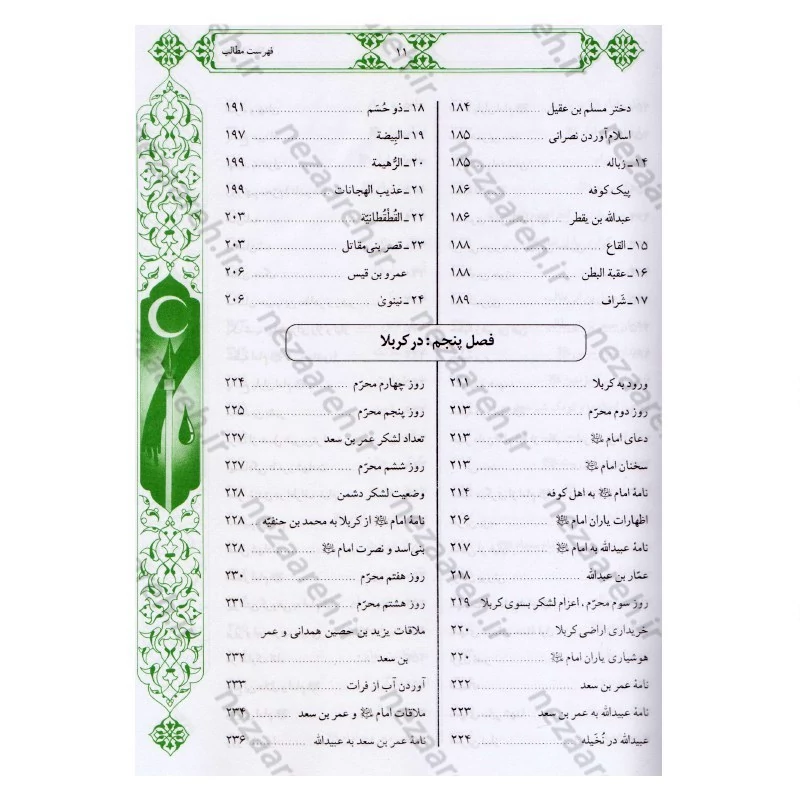 فهرست مطالب
۱۱
دختر مسلم بن عقیل ۱۸۴
اسلام‌آوردن نصرانی ۱۸۵
۱۴ـ زباله ۱۸۵
پیک کوفه ۱۸۶
عبدالله بن یقطر ۱۸۶
۱۵ـ القاع ۱۸۸
۱۶ـ عقبة البطن ۱۸۸
۱۷ـ شَراف ۱۸۹
۱۸ـ ذو حُسَم ۱۹۱
۱۹ـ البِیضة ۱۹۷
۲۰ـ الرُّهیمة ۱۹۹
۲۱ـ عذیب الهجانات ۱۹۹
۲۲ـ القُطْقُطانِیّة ۲۰۳
۲۳ـ قصر بنی‌مقاتل ۲۰۳
عمرو بن قیس ۲۰۶
۲۴ـ نینویٰ ۲۰۶
فصل پنجم: در کربلا
ورود به کربلا ۲۱۱
روز دوم محرّم ۲۱۳
دعای امام ﷷ ۲۱۳
سخنان امام ﷷ ۲۱۳
نامهٔ امام ﷷ به اهل کوفه ۲۱۴
اظهارات یاران امام ﷷ ۲۱۶
نامهٔ عبیدالله به امام ﷷ ۲۱۷
عمّار بن عبدالله ۲۱۸
روز سوم محرّم . اعزام لشکر بسوی کربلا ۲۱۹
خریداری اراضی کربلا ۲۲۰
هوشیاری یاران امام ﷷ ۲۲۰
نامهٔ عمر بن سعد ۲۲۲
نامهٔ عبیدالله به عمر بن سعد ۲۲۳
عبیدالله در نُخَیله ۲۲۴
روز چهارم محرّم ۲۲۴
روز پنجم محرّم ۲۲۵
تعداد لشکر عمر بن سعد ۲۲۷
روز ششم محرّم ۲۲۷
وضعیت لشکر دشمن ۲۲۸
نامهٔ امام ﷷ از کربلا به محمد بن حنفیّه ۲۲۸
بنی‌اسد و نصرت امام ﷷ ۲۲۸
روز هفتم محرّم ۲۳۰
روز هشتم محرّم ۲۳۱
ملاقات یزید بن حصین همدانی و عمر
بن سعد ۲۳۲
آوردن آب از فرات ۲۳۳
ملاقات امام ﷷ و عمر بن سعد ۲۳۴
نامهٔ عمر بن سعد به عبیدالله ۲۳۶
nezaareh.ir